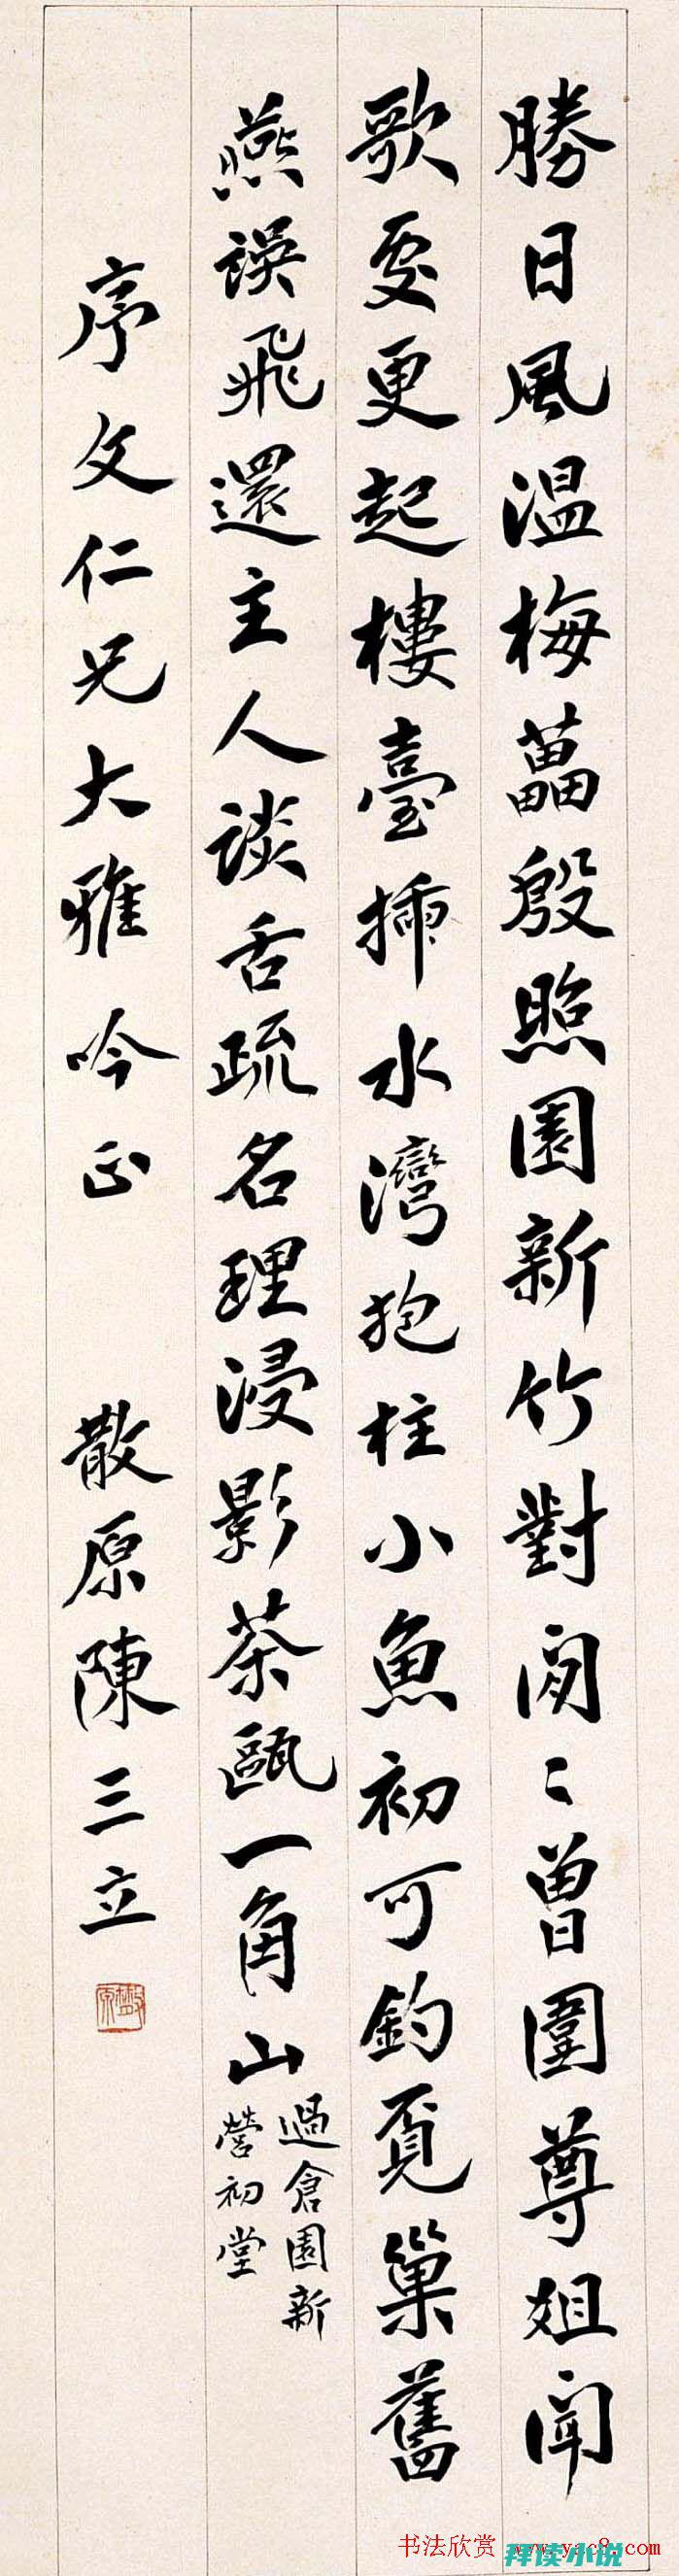 勝日風温梅藟殷照園新竹對閒〻曾圍尊俎聞
歌處更起樓臺插水灣抱柱小魚初可釣覓巢舊
燕誤飛還主人談舌疏名理浸影茶甌一角山
過倉園新
營初堂
序文仁兄大雅吟正 散原陳三立
书法欣赏 www.yac8.com
拜读小说